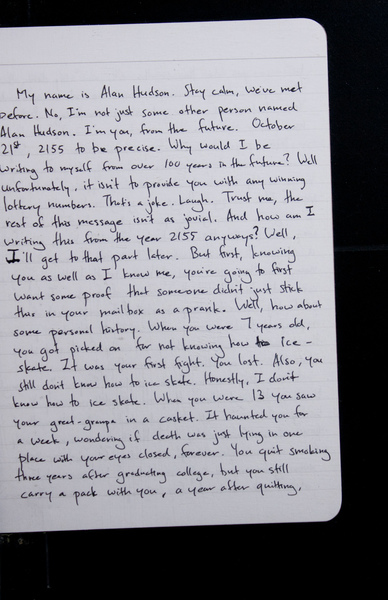 My name is Alan Hudson. Stay calm, we've met
before. No, I'm not just some other person named
Alan Hudson. I'm you, from the future. October
21st, 2155 to be precise. Why would I be
writing to myself from over 100 years in the future? Well
unfortunately, it isn't to provide you with any winning
lottery numbers. That's a joke. Laugh. Trust me, the
rest of this message isn't as jovial. And how am I
writing this from the year 2155 anyways? Well,
I'll get to that part later. But first, knowing
you as well as I know me, you're going to first
want some proof that someone didn't just stick
this in your mailbox as a prank. Well, how about
some personal history. When you were 7 years old,
you got picked on for not knowing how to ice-
skate. It was your first fight. You lost. Also, you
still don't know how to ice skate. Honestly, I don't
know how to ice skate. When you were 13 you saw
your great-grampa in a casket. It haunted you for
a week, wondering if death was just lying in one
place with your eyes closed, forever. You quit smoking
three years after graduating college, but you still
carry a pack with you, a year after quitting,